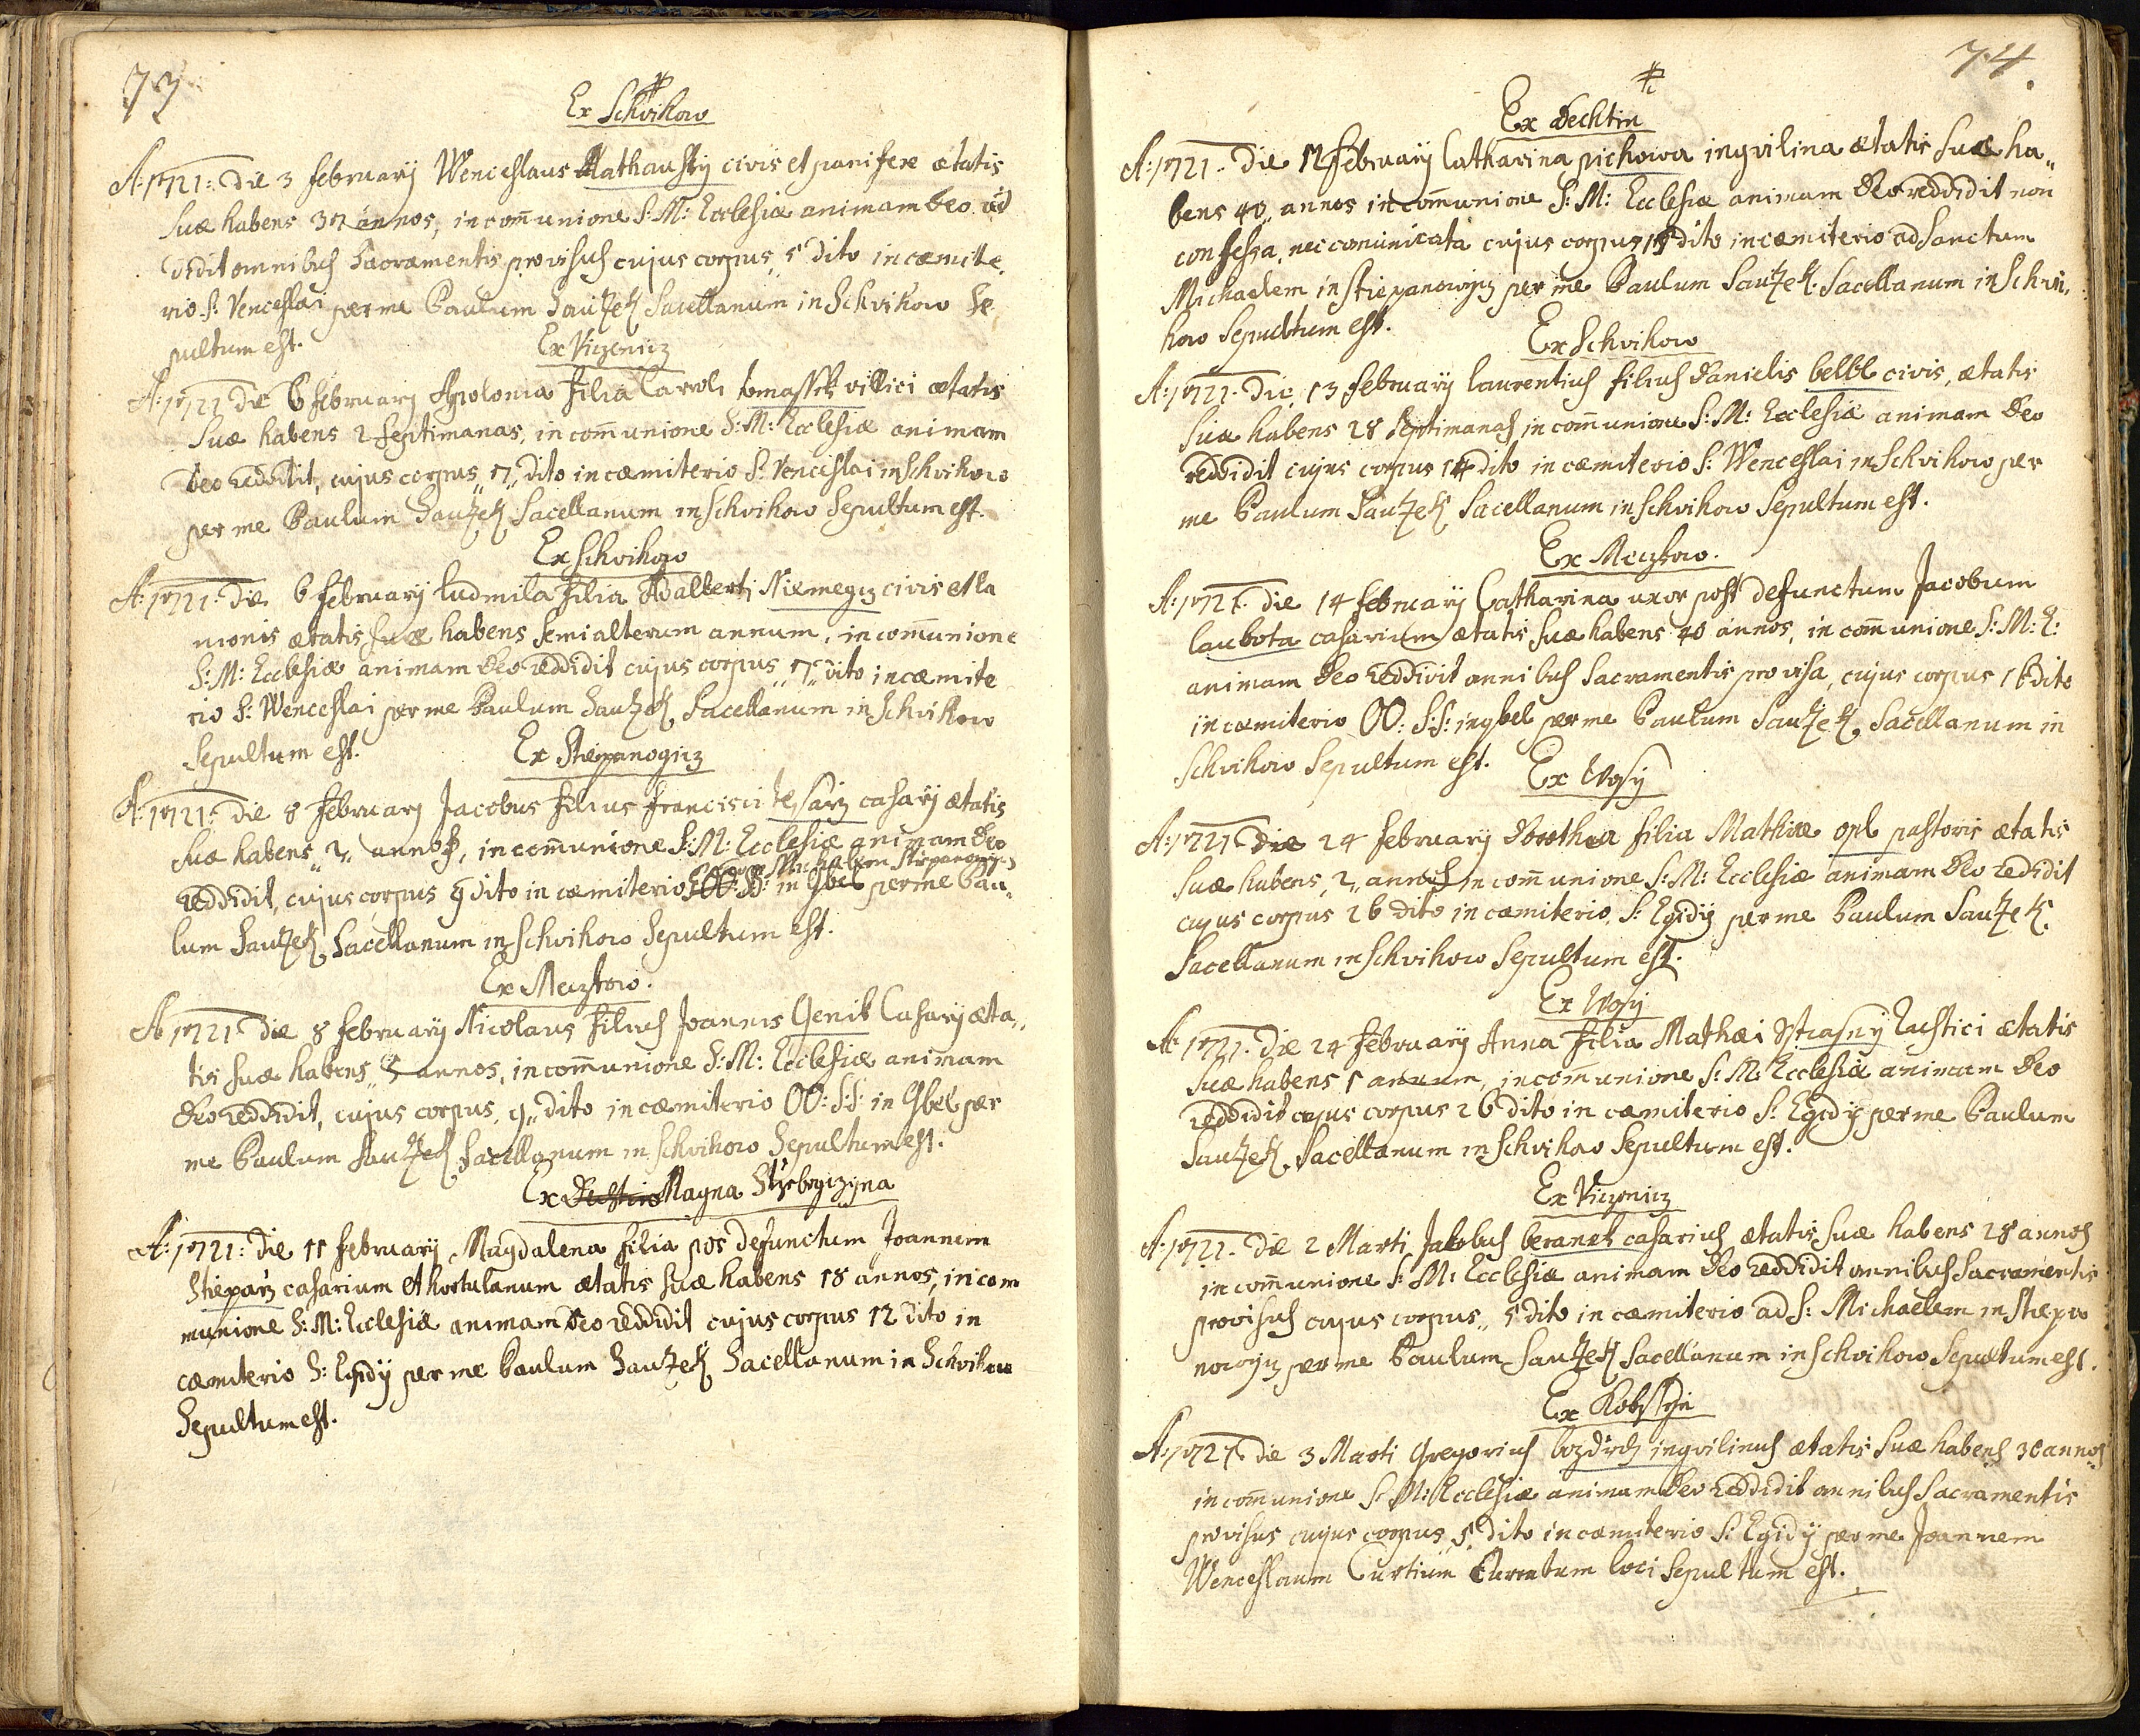 73
Ex Schvihow
A: 1721: Die 3 February Wenceslaus Mathausky civis et panifex ætatis
suæ habens 37 annos, in com̄unione S: M: Ecclesiæ animam Deo red
didit omnibus Sacramentis provisus cujus corpus, 5 dito in cæmite,
rio S: Venceslai per me Paulum Sautzek Sacellanum in Schvihow Se
pultum est.
Ex Viczenicz
A: 1721 Die 6 february Apolonia filia Caroli tomassek villici ætatis
suæ habens 2 septimanas, in com̄unione S: M: Ecclesiæ animam
Deo reddidit, cujus corpus, 7, dito in cæmiterio S: Venceslai in Schvihow
per me Paulum Sautzek Sacellanum in Schvihow Sepultum est.
Ex Schvihow
A: 1721: Die 6 february Ludmila filia Adalberti Niemegcz civis et la
nionis ætatis suæ habens semialterum annum, in com̄unione
S: M: Ecclesiæ animam Deo reddidit cujus corpus, 7, dito in cæmite
rio S: Wenceslai per me Paulum Sautzek Sacellanum in Schvihow
Sepultum est.
Ex Stiepanogicz
A: 1721: Die 8 february Jacobus filius Francisci tesarz casary ætatis
suæ habens, 2, annos, in com̄unione S: M: Ecclesiæ animam Deo
Michalem Stiepanowicz
reddidit, cujus corpus 9 dito in cæmiterio OO: SS: in Gbel per me Pau,
lum Sautzek Sacellanum in Schvihow Sepultum est.
Ex Mecztow.
A 1721 Die 8 february Nicolaus filius Joannis Genik Casary æta,,
tis suæ habens, 3 annos, in com̄unione S: M: Ecclesiæ animam
Deo reddidit, cujus corpus, 9,, dito in cæmiterio OO: S:S: in Gbel per
me Paulum Sautzek Sacellanum in Schvihow Sepultum est.
Ex Magna Strzebogczyna
A: 1721: Die 11 february Magdalena filia pos defunctum Joannem
Stieparz casarium et hortulanum ætatis suæ habens 18 annos, in com
munione S: M: Ecclesiæ animam Deo reddidit cujus corpus 12 dito in
cæmiterio S: Egidy per me Paulum Sautzek Sacellanum in Schvihow
Sepultum est.
74
Ex Dechtin
A: 1721. Die 12 february Catharina pichowa inqvilina ætatis suæ ha,,
bens 40, annos in com̄unione S: M: Ecclesiæ animam Deo reddidit non
confessa, nec com̄unicata cujus corpus 15 dito in cæmiterio ad Sanctum
Michaelem in Stiepanowicz per me Paulum Sautzek Sacellanum in Schvi,
how Sepultum est.
Ex Schvihow
A: 1721. Die 13 february Laurentius filius Danielis belbl civis, ætatis
suæ habens 28 septimanas in com̄unione S: M: Ecclesiæ animam Deo
reddidit cujus corpus 14 dito in cæmiterio S: Wenceslai in Schvihow per
me Paulum Sautzek Sacellanum in Schvihow Sepultum est.
Ex Mecztow.
A: 1721. Die 14 february Catharina uxor post defunctum Jacobum
laubota casarium ætatis suæ habens 40 annos, in com̄unione S: M: E:
animam Deo reddidit omnibus Sacramentis provisa, cujus corpus 16 dito
in cæmiterio OO: S:S: in gbel per me Paulum Sautzek Sacellanum in
Schvihow Sepultum est.
Ex Wosy
A: 1721 Die 24 february Dorothea filia Mathiæ opl pastoris ætatis
suæ habens, 2, annos in com̄unione S: M: Ecclesiæ animam Deo redidit
cujus corpus 26 dito in cæmiterio S: Egidy per me Paulum Sautzek
Sacellanum in Schvihow Sepultum est.
Ex Wosy
A: 1721. Die 24 february Anna filia Mathæi Strasny Rustici ætatis
suæ habens 1 annum, in com̄unione S: M: Ecclesiæ animam Deo
reddidit cujus corpus 26 dito in cæmiterio S: Egidy per me Paulum
Sautzek Sacellanum in Schvihow Sepultum est.
Ex Viczenicz
A: 1721. Die 2 Marti Jakobus beranek casarius ætatis suæ habens 28 annos
in com̄unione S: M: Ecclesiæ animam Deo reddidit omnibus Sacramentis
provisus cujus corpus,, 5 dito in cæmiterio ad S: Michaelem in Stiepa
nowicz per me Paulum Sautzek Sacellanum in Schvihow Sepultum est.
Ex Kobsstin
A: 1721. Die 3 Marti Gregorius bozdiech inqvilinus ætatis suæ habens 30 annos
in com̄unione S: M: Ecclesiæ animam Deo reddidit omnibus Sacramentis
provisus cujus corpus, 5, dito in cæmiterio S: Egidy per me Joannem
Wenceslaum Curtium Curatum loci Sepultum est.